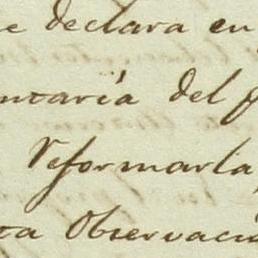 e declara en
ntaria del
Reformarla,
ta Observaci